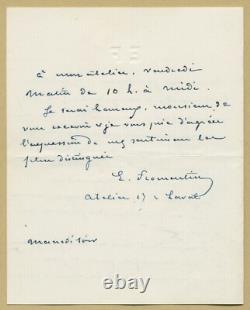 à mon atelier, vendredi
matin de 10 h. à midi.
Je serai heureux, monsieur de
vous recevoir & je vous prie d'agréer
l'expression de mes sentiments les
plus distingués
E. Fromentin
atelier
mardi soir
© thebut.com